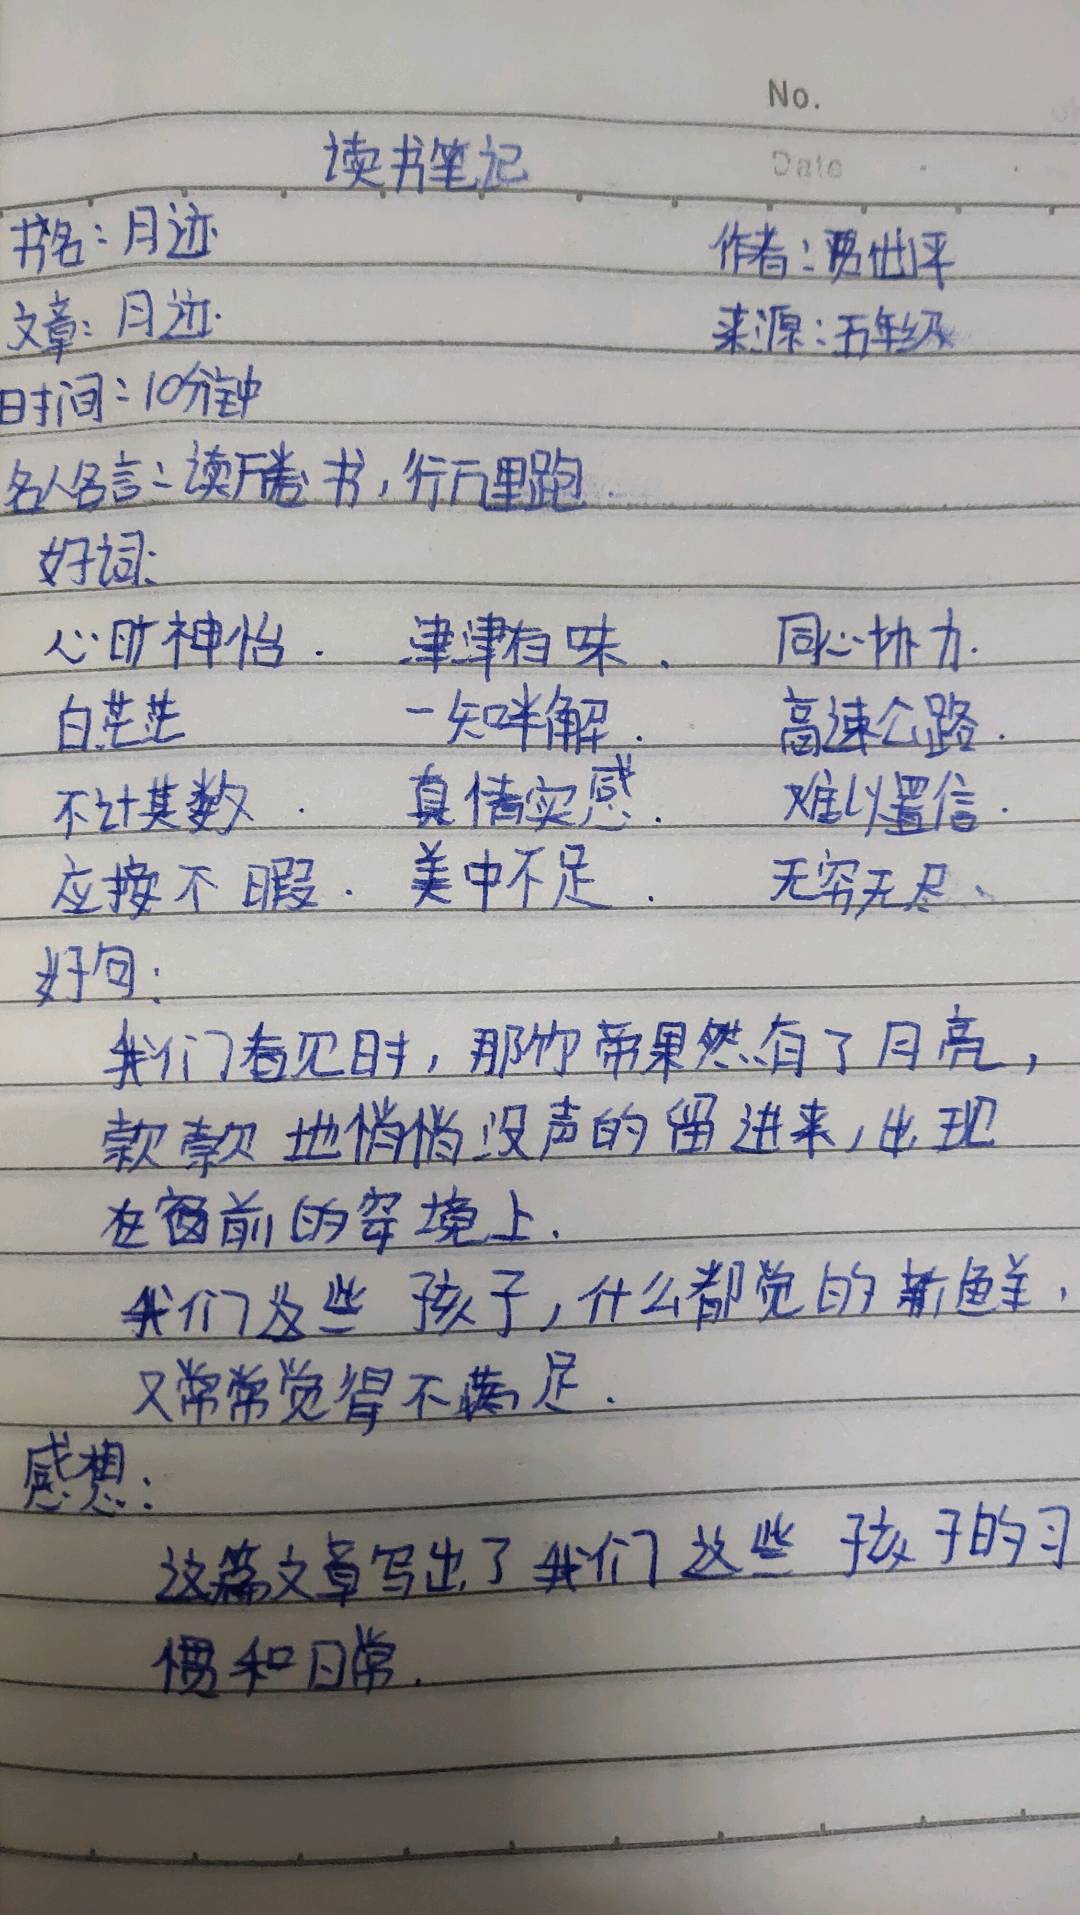 No.
读书笔记
Date
书名：月迹
作者：贾世平
文章：月迹
来源：五年级
时间：10分钟
名人名言：读万卷书，行万里跑
好词：
心旷神怡． 津津有味． 同心协力．
白茫茫 一知半解． 高速公路．
不计其数． 真情实感． 难以置信．
应接不暇． 美中不足． 无穷无尽、
好句：
我们看见时，那竹帘果然有了月亮，
款款地悄悄没声的留进来，出现
在窗前的穿境上．
我们这些孩子，什么都觉的新鲜，
又常常觉得不满足．
感想：
这篇文章写出了我们这些孩子的习
惯和日常．